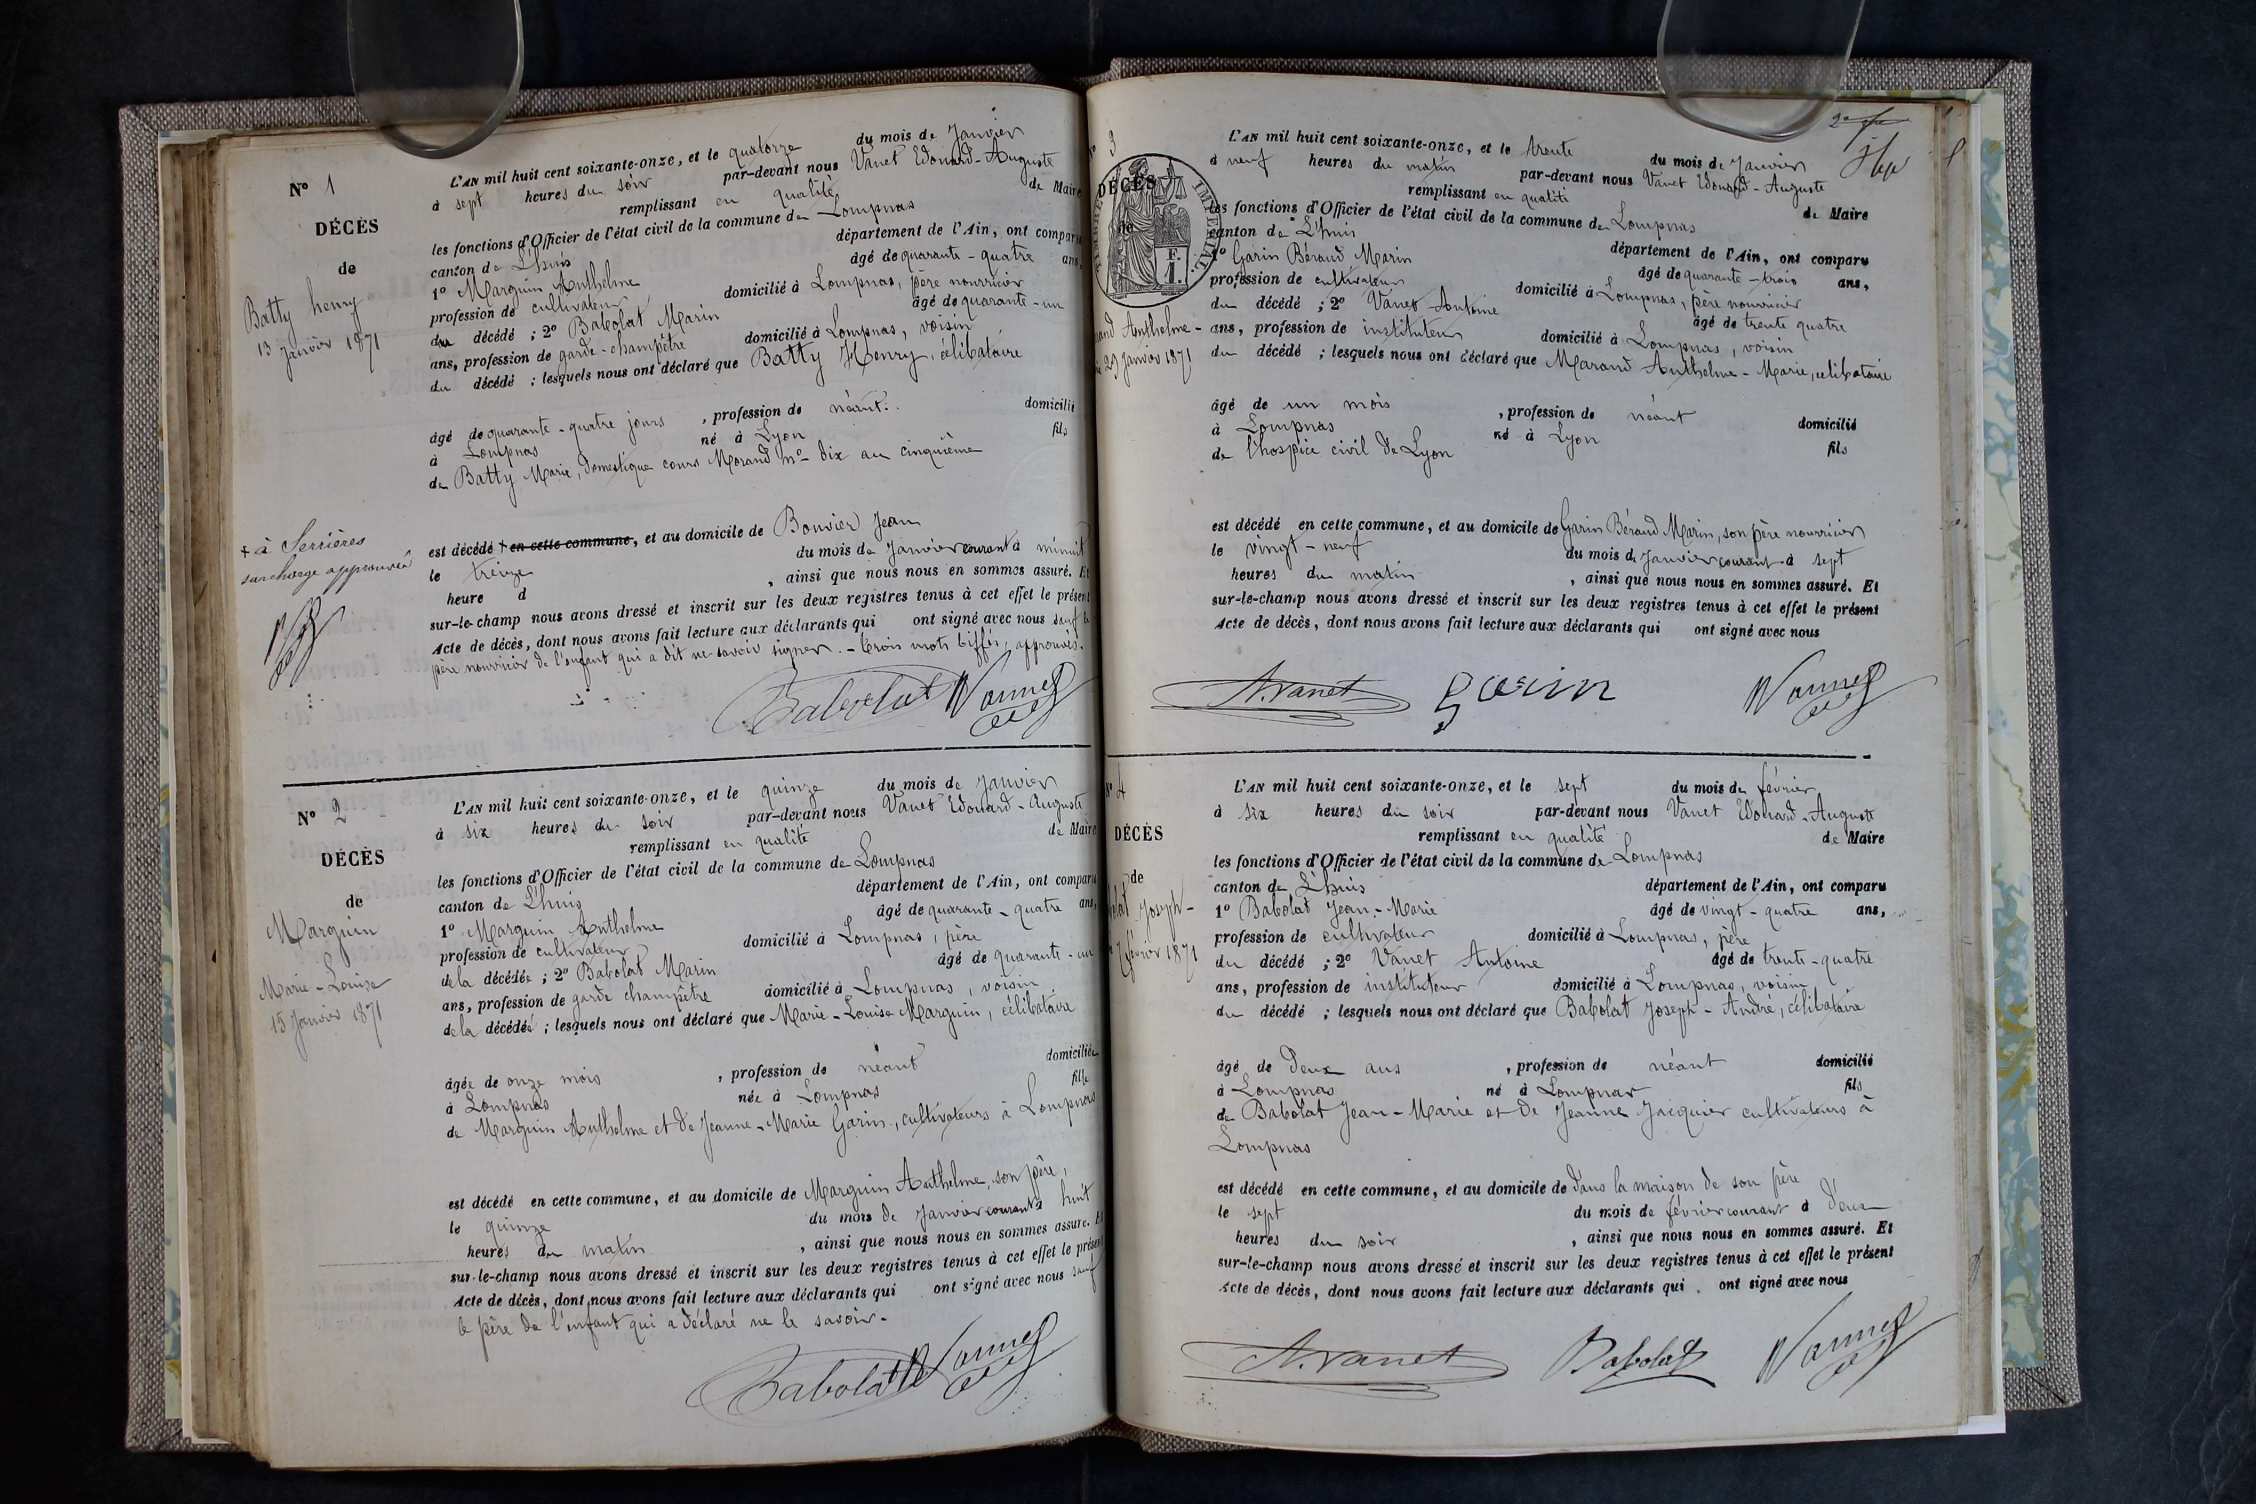 N° 1
DÉCÈS
de
Batty henry
13 Janvier 1871
L'AN mil huit cent soixante-onze, et le quatorze du mois de Janvier
à sept heures du soir par-devant nous Vanet Edouard-Auguste
remplissant en qualité de Maire
les fonctions d'Officier de l'état civil de la commune de Lompnas
canton de L'huis département de l'Ain, ont comparu
1° Marguin Anthelme âgé de quarante-quatre ans,
profession de cultivateur domicilié à Lompnas, père nourricier
du décédé ; 2° Babolat Marin âgé de quarante-un
ans, profession de garde-champêtre domicilié à Lompnas, voisin
du décédé ; lesquels nous ont déclaré que Batty Henry, célibataire
âgé de quarante-quatre jours , profession de néant. domicilié
à Lompnas né à Lyon fils
de Batty Marie, domestique cours Morand n° dix au cinquième
+ à Serrières
surcharge approuvée
est décédé + en cette commune, et au domicile de Bouvier Jean
le treize du mois de Janvier courant à minuit
heure d , ainsi que nous nous en sommes assuré. Et
sur-le-champ nous avons dressé et inscrit sur les deux registres tenus à cet effet le présent
Acte de décès, dont nous avons fait lecture aux déclarants qui ont signé avec nous sauf le
père nourricier de l'enfant qui a dit ne savoir signer. - Trois mots biffés, approuvés.
Babolat Vanet
N° 2
DÉCÈS
de
Marguin
Marie-Louise
15 Janvier 1871
L'AN mil huit cent soixante-onze, et le quinze du mois de Janvier
à six heures du soir par-devant nous Vanet Edouard-Auguste
remplissant en qualité de Maire
les fonctions d'Officier de l'état civil de la commune de Lompnas
canton de Lhuis département de l'Ain, ont comparu
1° Marguin Anthelme âgé de quarante-quatre ans,
profession de cultivateur domicilié à Lompnas, père
de la décédée ; 2° Babolat Marin âgé de quarante-un
ans, profession de garde champêtre domicilié à Lompnas, voisin
de la décédée ; lesquels nous ont déclaré que Marie-Louise Marguin, célibataire
âgée de onze mois , profession de néant domiciliée
à Lompnas née à Lompnas fille
de Marguin Anthelme et de Jeanne-Marie Garin, cultivateurs à Lompnas
est décédé en cette commune, et au domicile de Marguin Anthelme, son père,
le quinze du mois de Janvier courant à huit
heures du matin , ainsi que nous nous en sommes assuré. Et
sur-le-champ nous avons dressé et inscrit sur les deux registres tenus à cet effet le présent
Acte de décès, dont nous avons fait lecture aux déclarants qui ont signé avec nous sauf
le père de l'enfant qui a déclaré ne le savoir.
Babolat Vanet
N° 3
DÉCÈS
de
TIMBRE IMPERIAL
1 F.
Anthelme-
29 Janvier 1871
L'AN mil huit cent soixante-onze, et le trente du mois de Janvier
à neuf heures du matin par-devant nous Vanet Edouard-Auguste
remplissant en qualité de Maire
les fonctions d'Officier de l'état civil de la commune de Lompnas
canton de L'huis département de l'Ain, ont comparu
1° Garin Béraud Marin âgé de quarante-trois ans,
profession de cultivateur domicilié à Lompnas, père nourricier
du décédé ; 2° Vanet Antoine âgé de trente quatre
ans, profession de instituteur domicilié à Lompnas, voisin
du décédé ; lesquels nous ont déclaré que Marand Anthelme-Marie, célibataire
âgé de un mois , profession de néant domicilié
à Lompnas né à Lyon fils
de l'hospice civil de Lyon
est décédé en cette commune, et au domicile de Garin Béraud Marin, son père nourricier
le vingt-neuf du mois de Janvier courant à sept
heures du matin , ainsi que nous nous en sommes assuré. Et
sur-le-champ nous avons dressé et inscrit sur les deux registres tenus à cet effet le présent
Acte de décès, dont nous avons fait lecture aux déclarants qui ont signé avec nous
A. Vanet garin Vanet
N° 4
DÉCÈS
de
Joseph-
7 février 1871
L'AN mil huit cent soixante-onze, et le sept du mois de février
à six heures du soir par-devant nous Vanet Edouard-Auguste
remplissant en qualité de Maire
les fonctions d'Officier de l'état civil de la commune de Lompnas
canton de L'huis département de l'Ain, ont comparu
1° Babolat Jean-Marie âgé de vingt-quatre ans,
profession de cultivateur domicilié à Lompnas, père
du décédé ; 2° Vanet Antoine âgé de trente-quatre
ans, profession de instituteur domicilié à Lompnas, voisin
du décédé ; lesquels nous ont déclaré que Babolat Joseph-André, célibataire
âgé de deux ans , profession de néant domicilié
à Lompnas né à Lompnas fils
de Babolat Jean-Marie et de Jeanne Jacquier cultivateurs à
Lompnas
est décédé en cette commune, et au domicile de dans la maison de son père
le sept du mois de février courant à deux
heures du soir , ainsi que nous nous en sommes assuré. Et
sur-le-champ nous avons dressé et inscrit sur les deux registres tenus à cet effet le présent
Acte de décès, dont nous avons fait lecture aux déclarants qui ont signé avec nous
A. Vanet Babolat Vanet